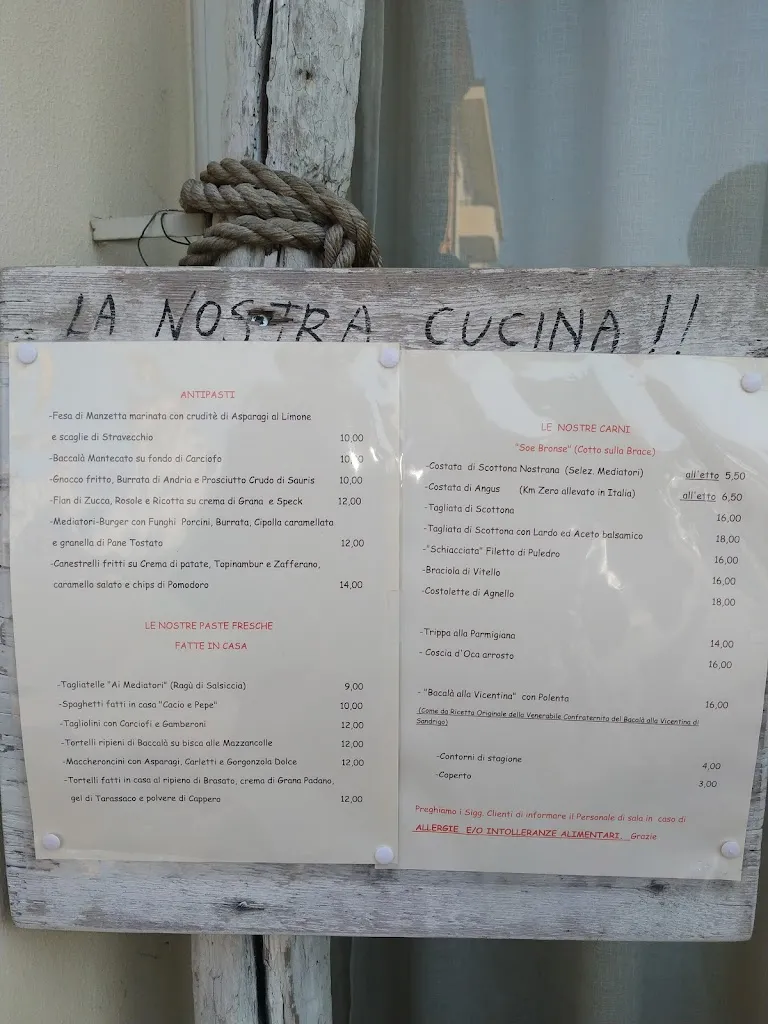 LA NOSTRA CUCINA!!
ANTIPASTI
-Fesa di Manzetta marinata con cruditè di Asparagi al Limone
e scaglie di Stravecchio 10,00
-Baccalà Mantecato su fondo di Carciofo 10,00
-Gnocco fritto, Burrata di Andria e Prosciutto Crudo di Sauris 10,00
-Flan di Zucca, Rosole e Ricotta su crema di Grana e Speck 12,00
-Mediatori-Burger con Funghi Porcini, Burrata, Cipolla caramellata
e granella di Pane Tostato 12,00
-Canestrelli fritti su Crema di patate, Topinambur e Zafferano,
caramello salato e chips di Pomodoro 14,00
LE NOSTRE PASTE FRESCHE
FATTE IN CASA
-Tagliatelle "Ai Mediatori" (Ragù di Salsiccia) 9,00
-Spaghetti fatti in casa "Cacio e Pepe" 10,00
-Tagliolini con Carciofi e Gamberoni 12,00
-Tortelli ripieni di Baccalà su bisca alle Mazzancolle 12,00
-Maccheroncini con Asparagi, Carletti e Gorgonzola Dolce 12,00
-Tortelli fatti in casa al ripieno di Brasato, crema di Grana Padano,
gel di Tarassaco e polvere di Cappero 12,00
LE NOSTRE CARNI
"Soe Bronse" (Cotto sulla Brace)
-Costata di Scottona Nostrana (Selez. Mediatori) all'etto 5,50
-Costata di Angus (Km Zero allevato in Italia) all'etto 6,50
-Tagliata di Scottona 16,00
-Tagliata di Scottona con Lardo ed Aceto balsamico 18,00
-"Schiacciata" Filetto di Puledro 16,00
-Braciola di Vitello 16,00
-Costolette di Agnello 18,00
-Trippa alla Parmigiana 14,00
- Coscia d'Oca arrosto 16,00
- "Bacalà alla Vicentina" con Polenta 16,00
(Come da Ricetta Originale della Venerabile Confraternita del Bacalà alla Vicentina di
Sandrigo)
-Contorni di stagione 4,00
-Coperto 3,00
Preghiamo i Sigg. Clienti di informare il Personale di sala in caso di
ALLERGIE E/O INTOLLERANZE ALIMENTARI. Grazie